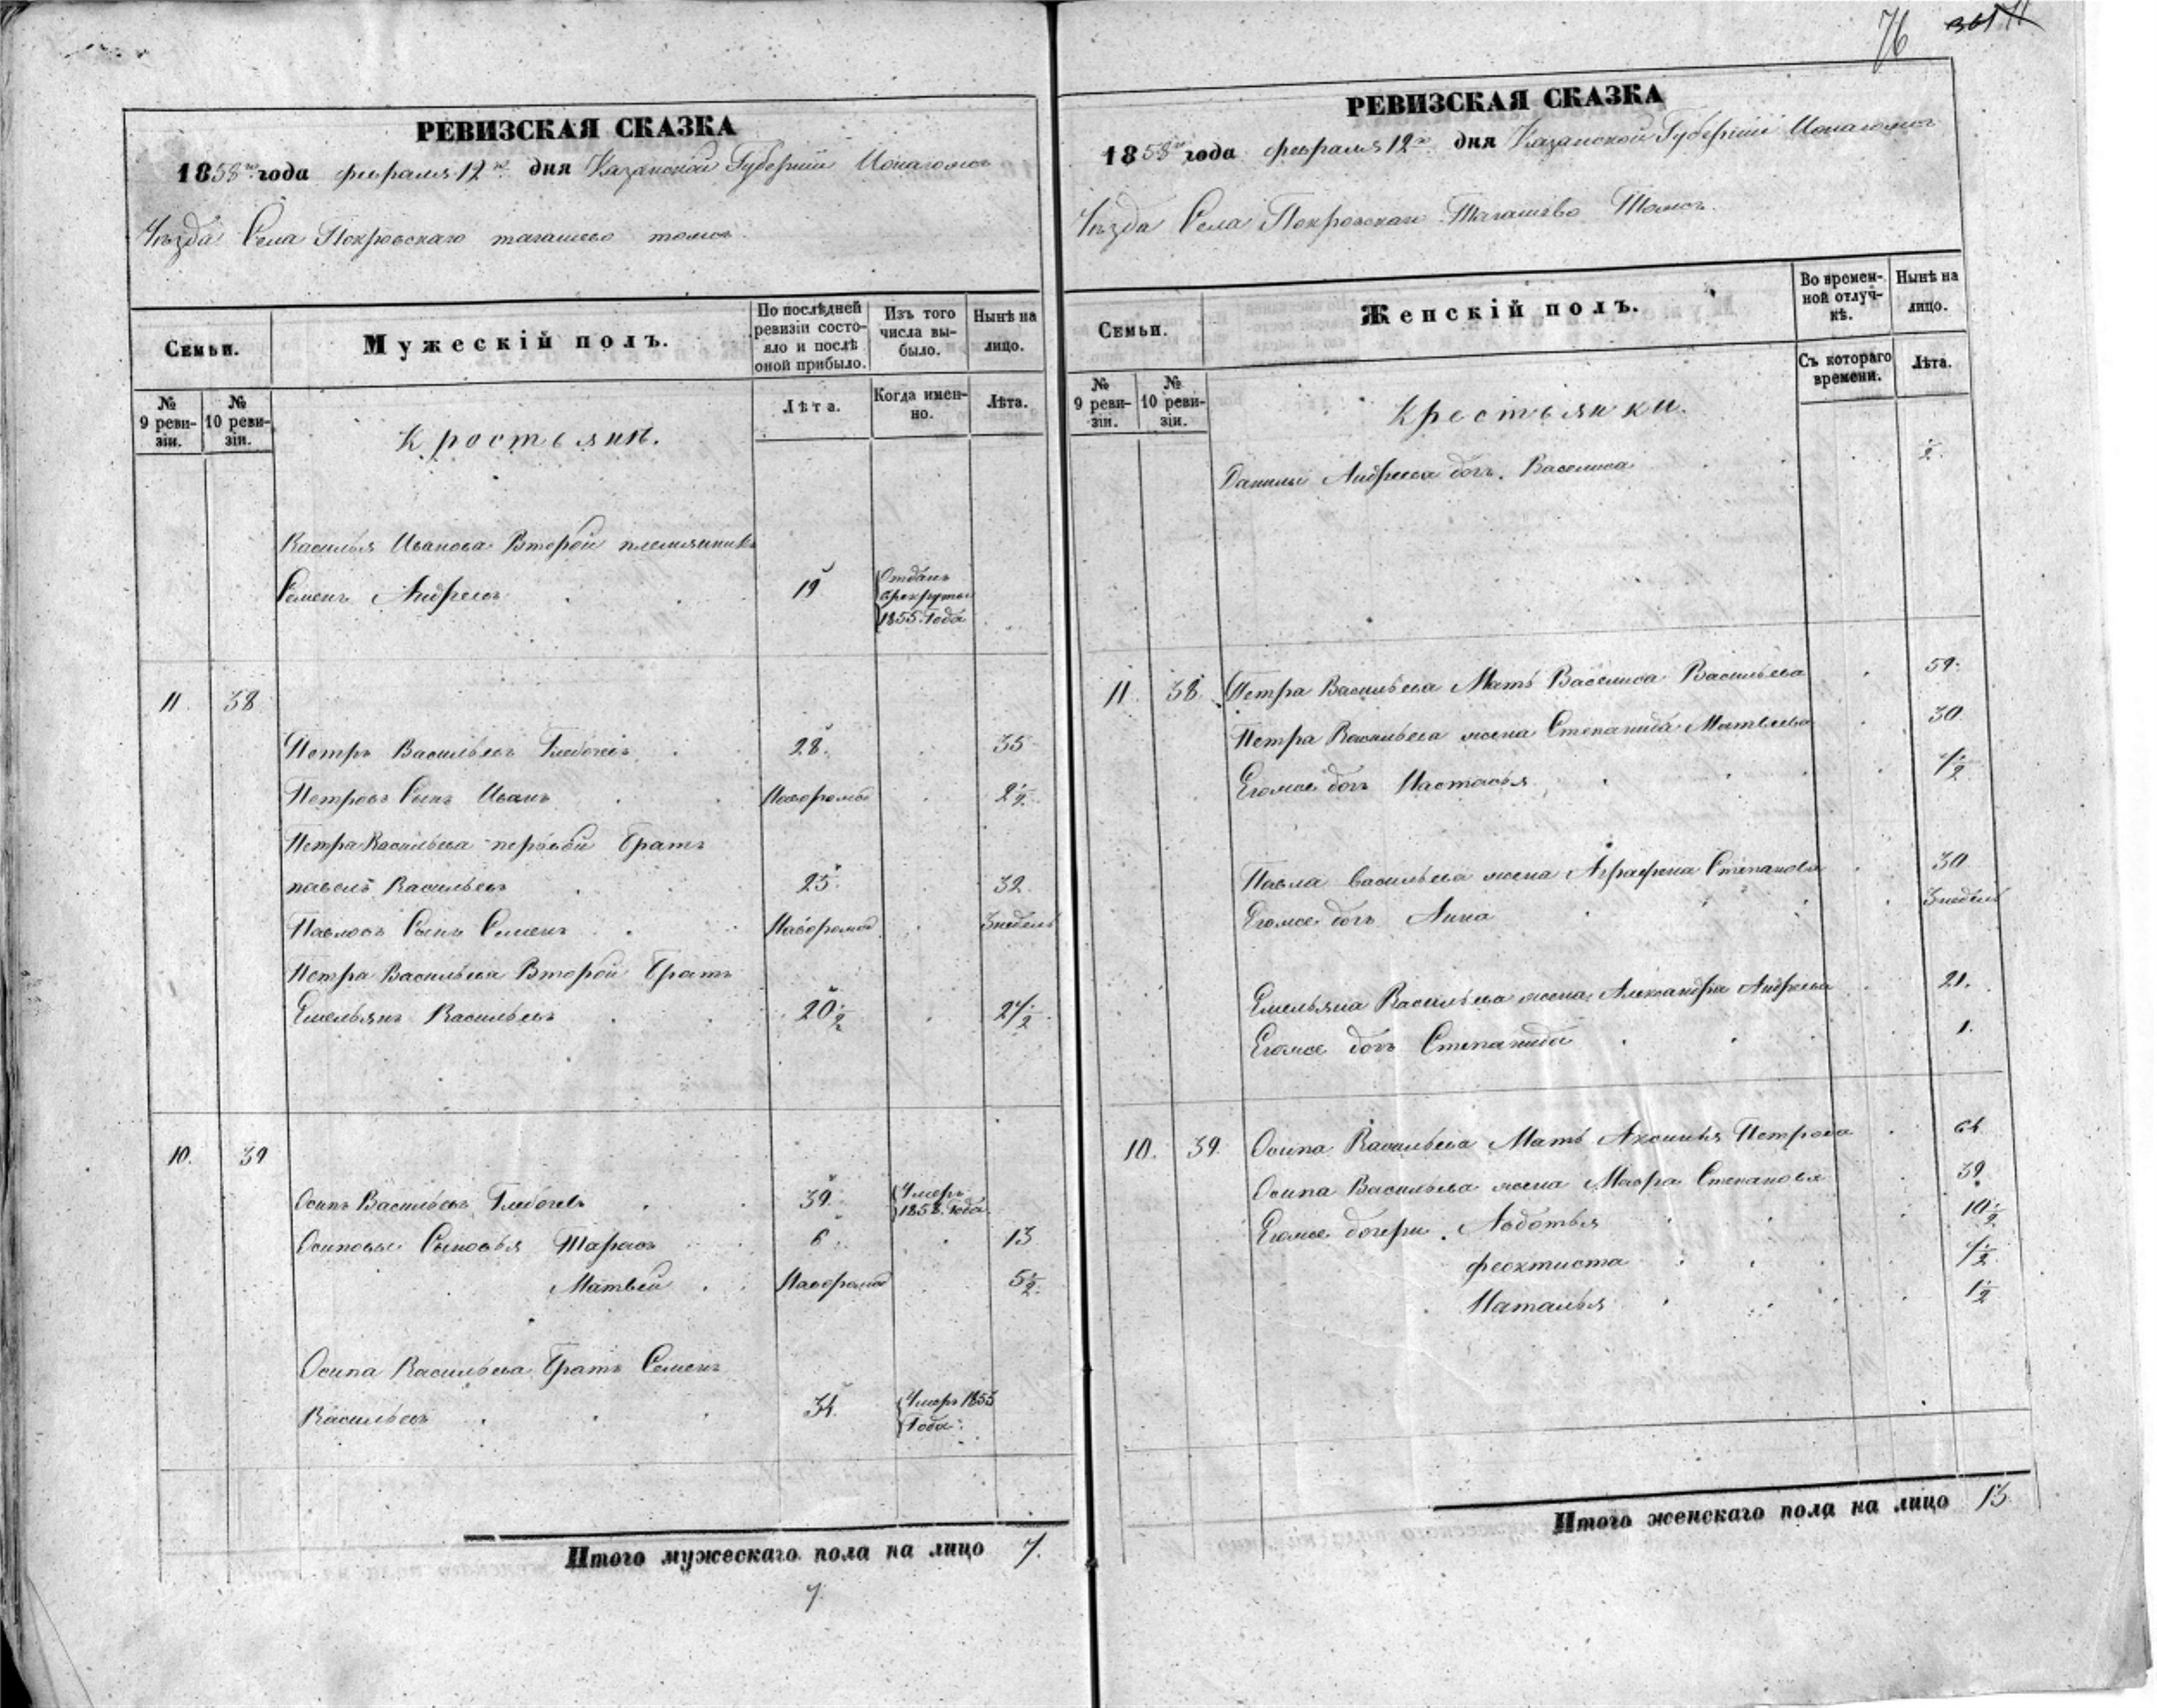 76
РЕВИЗСКАЯ СКАЗКА
1858го года февраля 12го дня Казанской Губернiи
Уѣзда Села Покровскаго тагашево тожъ
Семьи.
Мужескiй полъ.
По послѣдней ревизiи состояло и послѣ оной прибыло.
Изъ того числа выбыло.
Нынѣ на лицо.
№ 9 ревизiи.
№ 10 ревизiи.
Лѣта.
Когда именно.
Лѣта.
Василья Иванова Второй племянникъ
Семенъ Андреевъ 19 Отданъ врекруты 1855 Года
11 38
Петръ Васильевъ 28. 35
Петровъ Сынъ Иванъ Новорожд 2½
Петра Васильева первый братъ
павелъ Васильевъ 25 32.
Павловъ Сынъ Семенъ Новорожд 3недель
Петра Васильева Второй братъ
Емельянъ Васильевъ 20½ 27½
10. 39
Осипъ Васильевъ 39. Умеръ 1858. Года
Осиповы Сыновья Тарасъ 6 13
Матвей Новорожд 5½
Осипа Васильева братъ Семенъ
Васильевъ Умеръ 1855 Года
Итого мужескаго пола на лицо 7.
7
РЕВИЗСКАЯ СКАЗКА
1858го года февраля 12го дня Казанской Губернiи
Уѣзда Села Покровскаго Тагашево Тожъ
Семьи.
Женскiй полъ.
Во временной отлучкѣ.
Нынѣ на лицо.
№ 9 ревизiи.
№ 10 ревизiи.
Крестьянки.
Съ котораго времени.
Лѣта.
Данилы Андреева дочь Василиса ½
11. 38. Петра Васильева Мать Василиса Васильева 59.
Петра Васильева жена Степанида Матвеева 30
Егожее дочь Настасья
Павла Васильева жена Аграфена Степанова 30
Егожее дочь Анна 3недель
Емельяна Васильева жена Александра Андреева 21.
Егожее дочь Степанида 1.
10. 39. Осипа Васильева Мать Аксинья Петрова
Осипа Васильева жена Мавра Степанова 39.
Егожее дочери Авдотья 10½
феоктиста
Наталья 1½
Итого женскаго пола на лицо 13